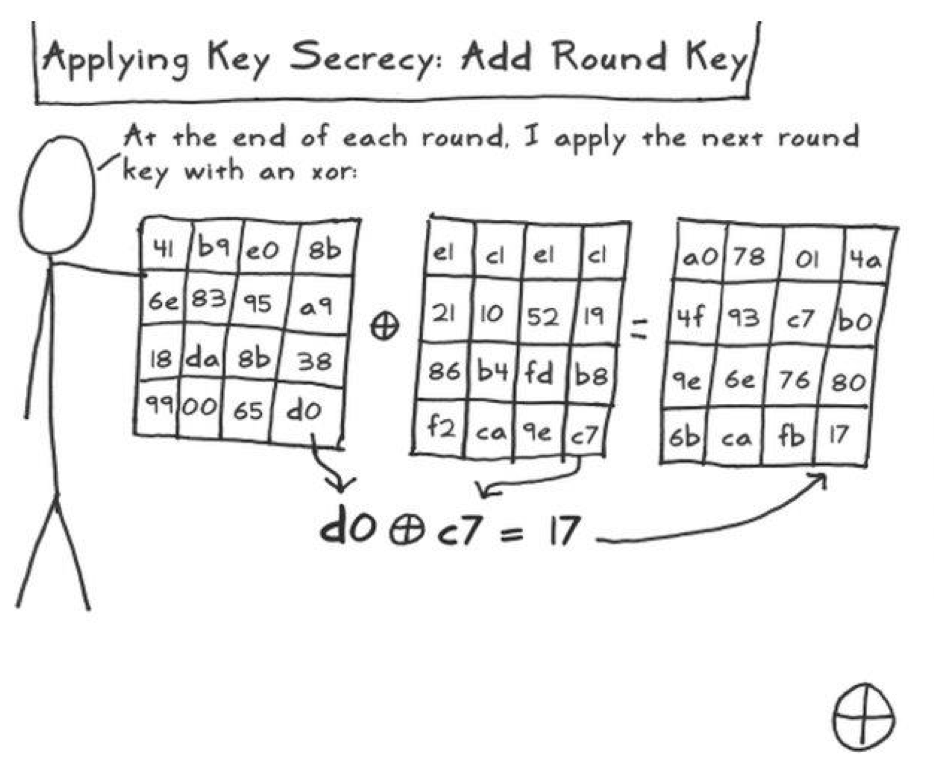 Applying Key Secrecy: Add Round Key
At the end of each round, I apply the next round
key with an xor:
41 b9 e0 8b
6e 83 95 a9
18 da 8b 38
99 00 65 d0
⊕
e1 c1 e1 c1
21 10 52 19
86 b4 fd b8
f2 ca 9e c7
=
a0 78 01 4a
4f 93 c7 b0
9e 6e 76 80
6b ca fb 17
d0 ⊕ c7 = 17
⊕